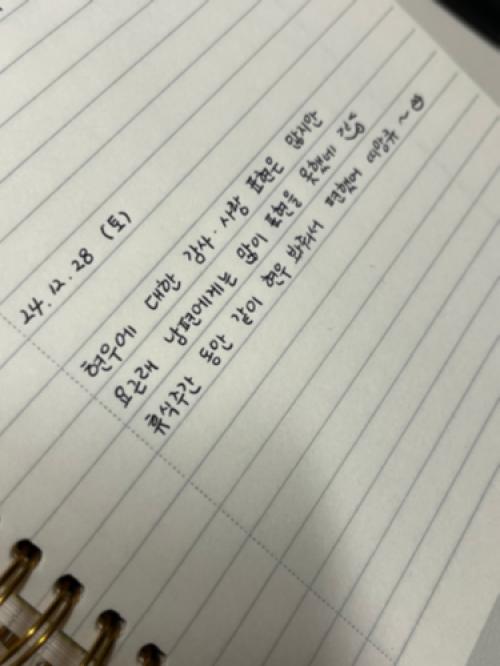 24.12.28 (토)
현우에 대한 감사·사랑 표현은 많지만
요근래 남편에게는 많이 표현을 못했네
휴식주간 동안 같이 현우 봐줘서 편했어 따랑규~